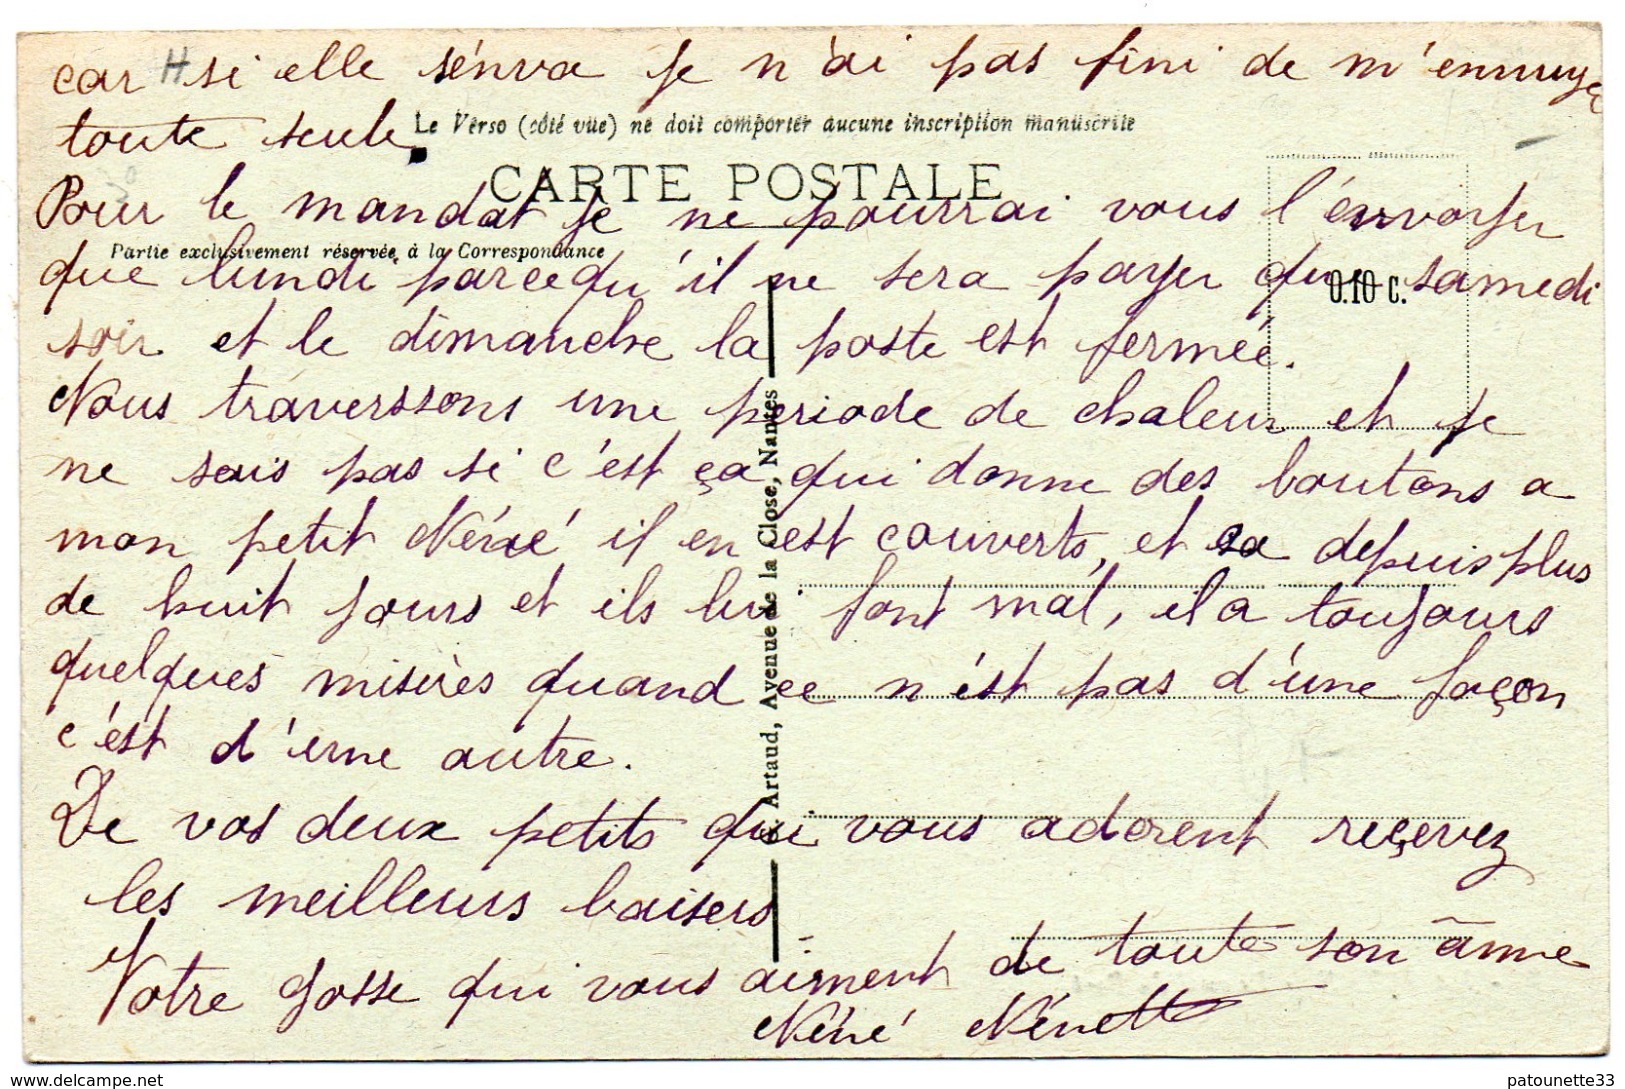 car si elle s'énva je n'ai pas fini de m'ennuye
toute seule.
Le Verso (côté vue) ne doit comporter aucune inscription manuscrite
CARTE POSTALE
Pour le mandat je ne pourrai vous l'envoyer
Partie exclusivement réservée à la Correspondance
que lundi parcequ'il ne sera payer que samedi
0.10 c.
soir et le dimanche la poste est fermée.
Nous traverssons une periode de chaleur et je
ne sais pas si c'est ça qui donne des boutons a
mon petit Néné il en est couverts, et sa depuis plus
de huit jours et ils lui font mal, il a toujours
quelques misères quand ce n'ést pas d'une façon
c'ést d'une autre.
De vos deux petits qui vous adorent reçevez
les meilleurs baisers
Votre gosse qui vous aiment de toute son âmme
Néné Nénette
G. Artaud, Avenue de la Close, Nantes
H
patounette33
www.delcampe.net